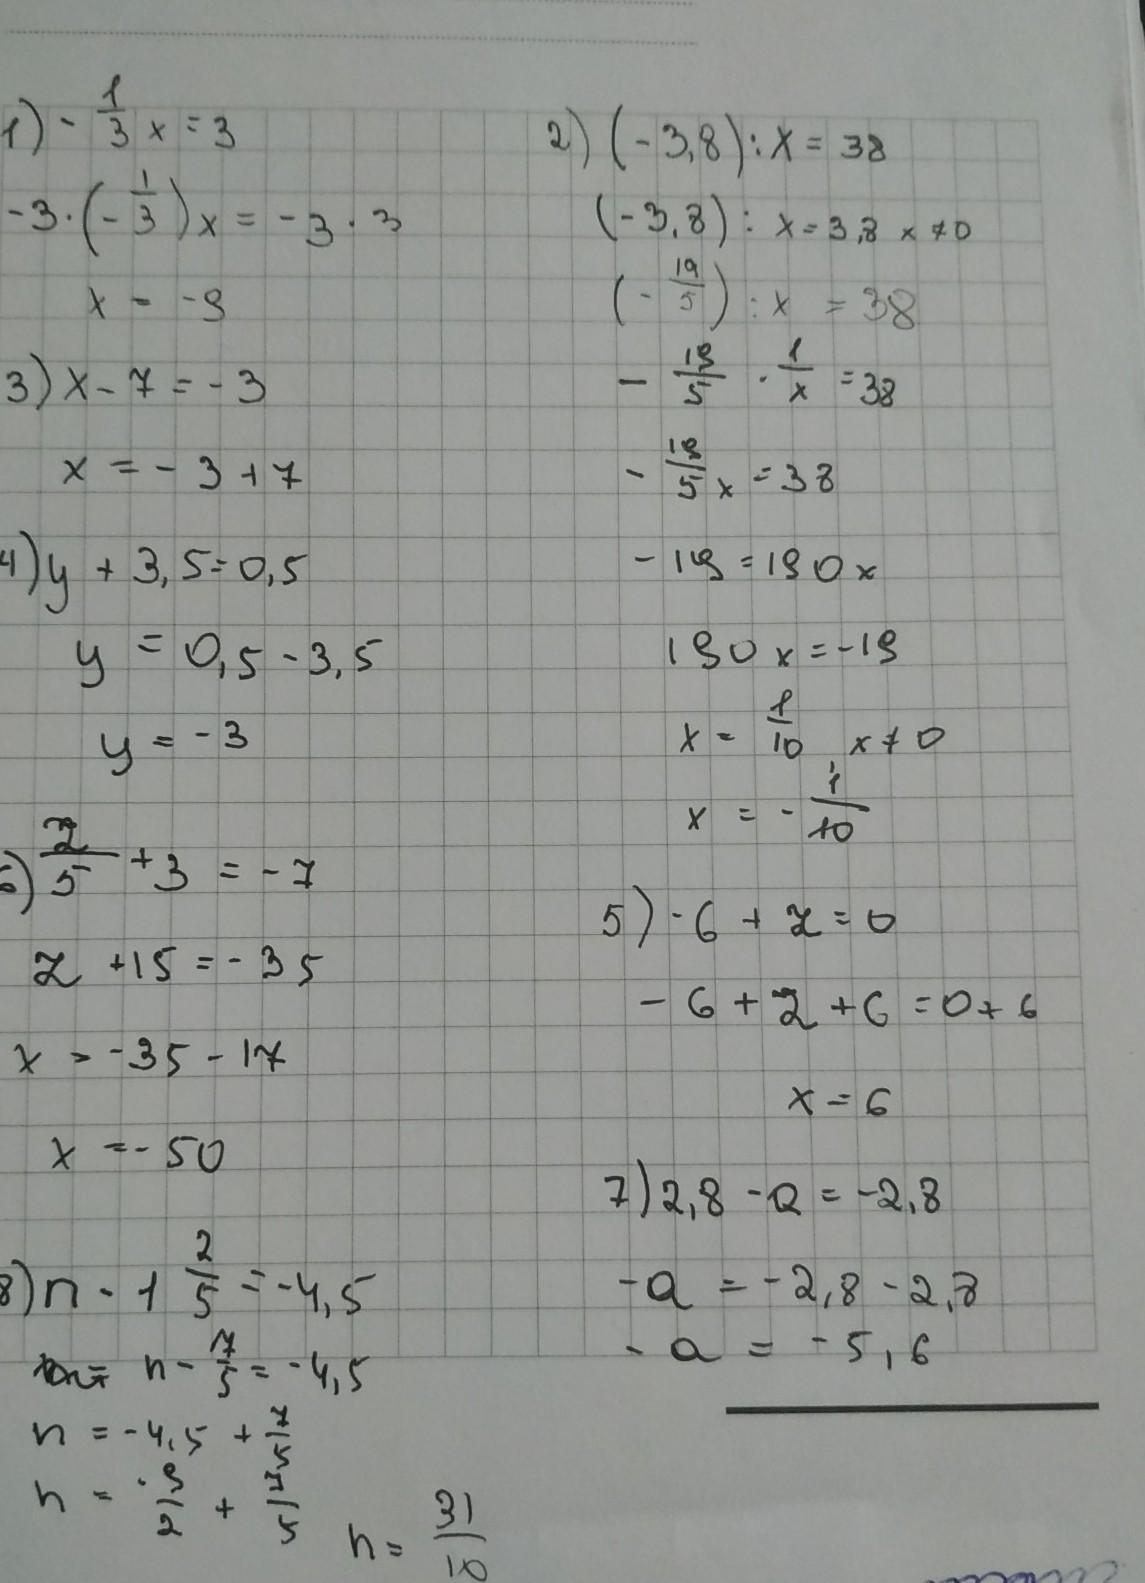 1) - 1/3 x = 3
-3 · (- 1/3) x = -3 · 3
x = -9
2) (-3,8) : x = 38
(-3,8) : x = 3,8 x ≠ 0
(- 19/5) : x = 38
- 19/5 · 1/x = 38
- 19/5x = 38
-19 = 190x
190x = -19
x = 1/10 x ≠ 0
x = - 1/10
3) x - 7 = -3
x = -3 + 7
4) y + 3,5 = 0,5
y = 0,5 - 3,5
y = -3
5) -6 + z = 0
-6 + z + 6 = 0 + 6
x = 6
6) z/5 + 3 = -7
z + 15 = -35
x = -35 - 17
x = -50
7) 2,8 - a = -2,8
-a = -2,8 - 2,8
-a = -5,6
8) n - 1 2/5 = -4,5
n - 7/5 = -4,5
n = -4,5 + 7/5
n = -9/2 + 7/5
n = 31/10